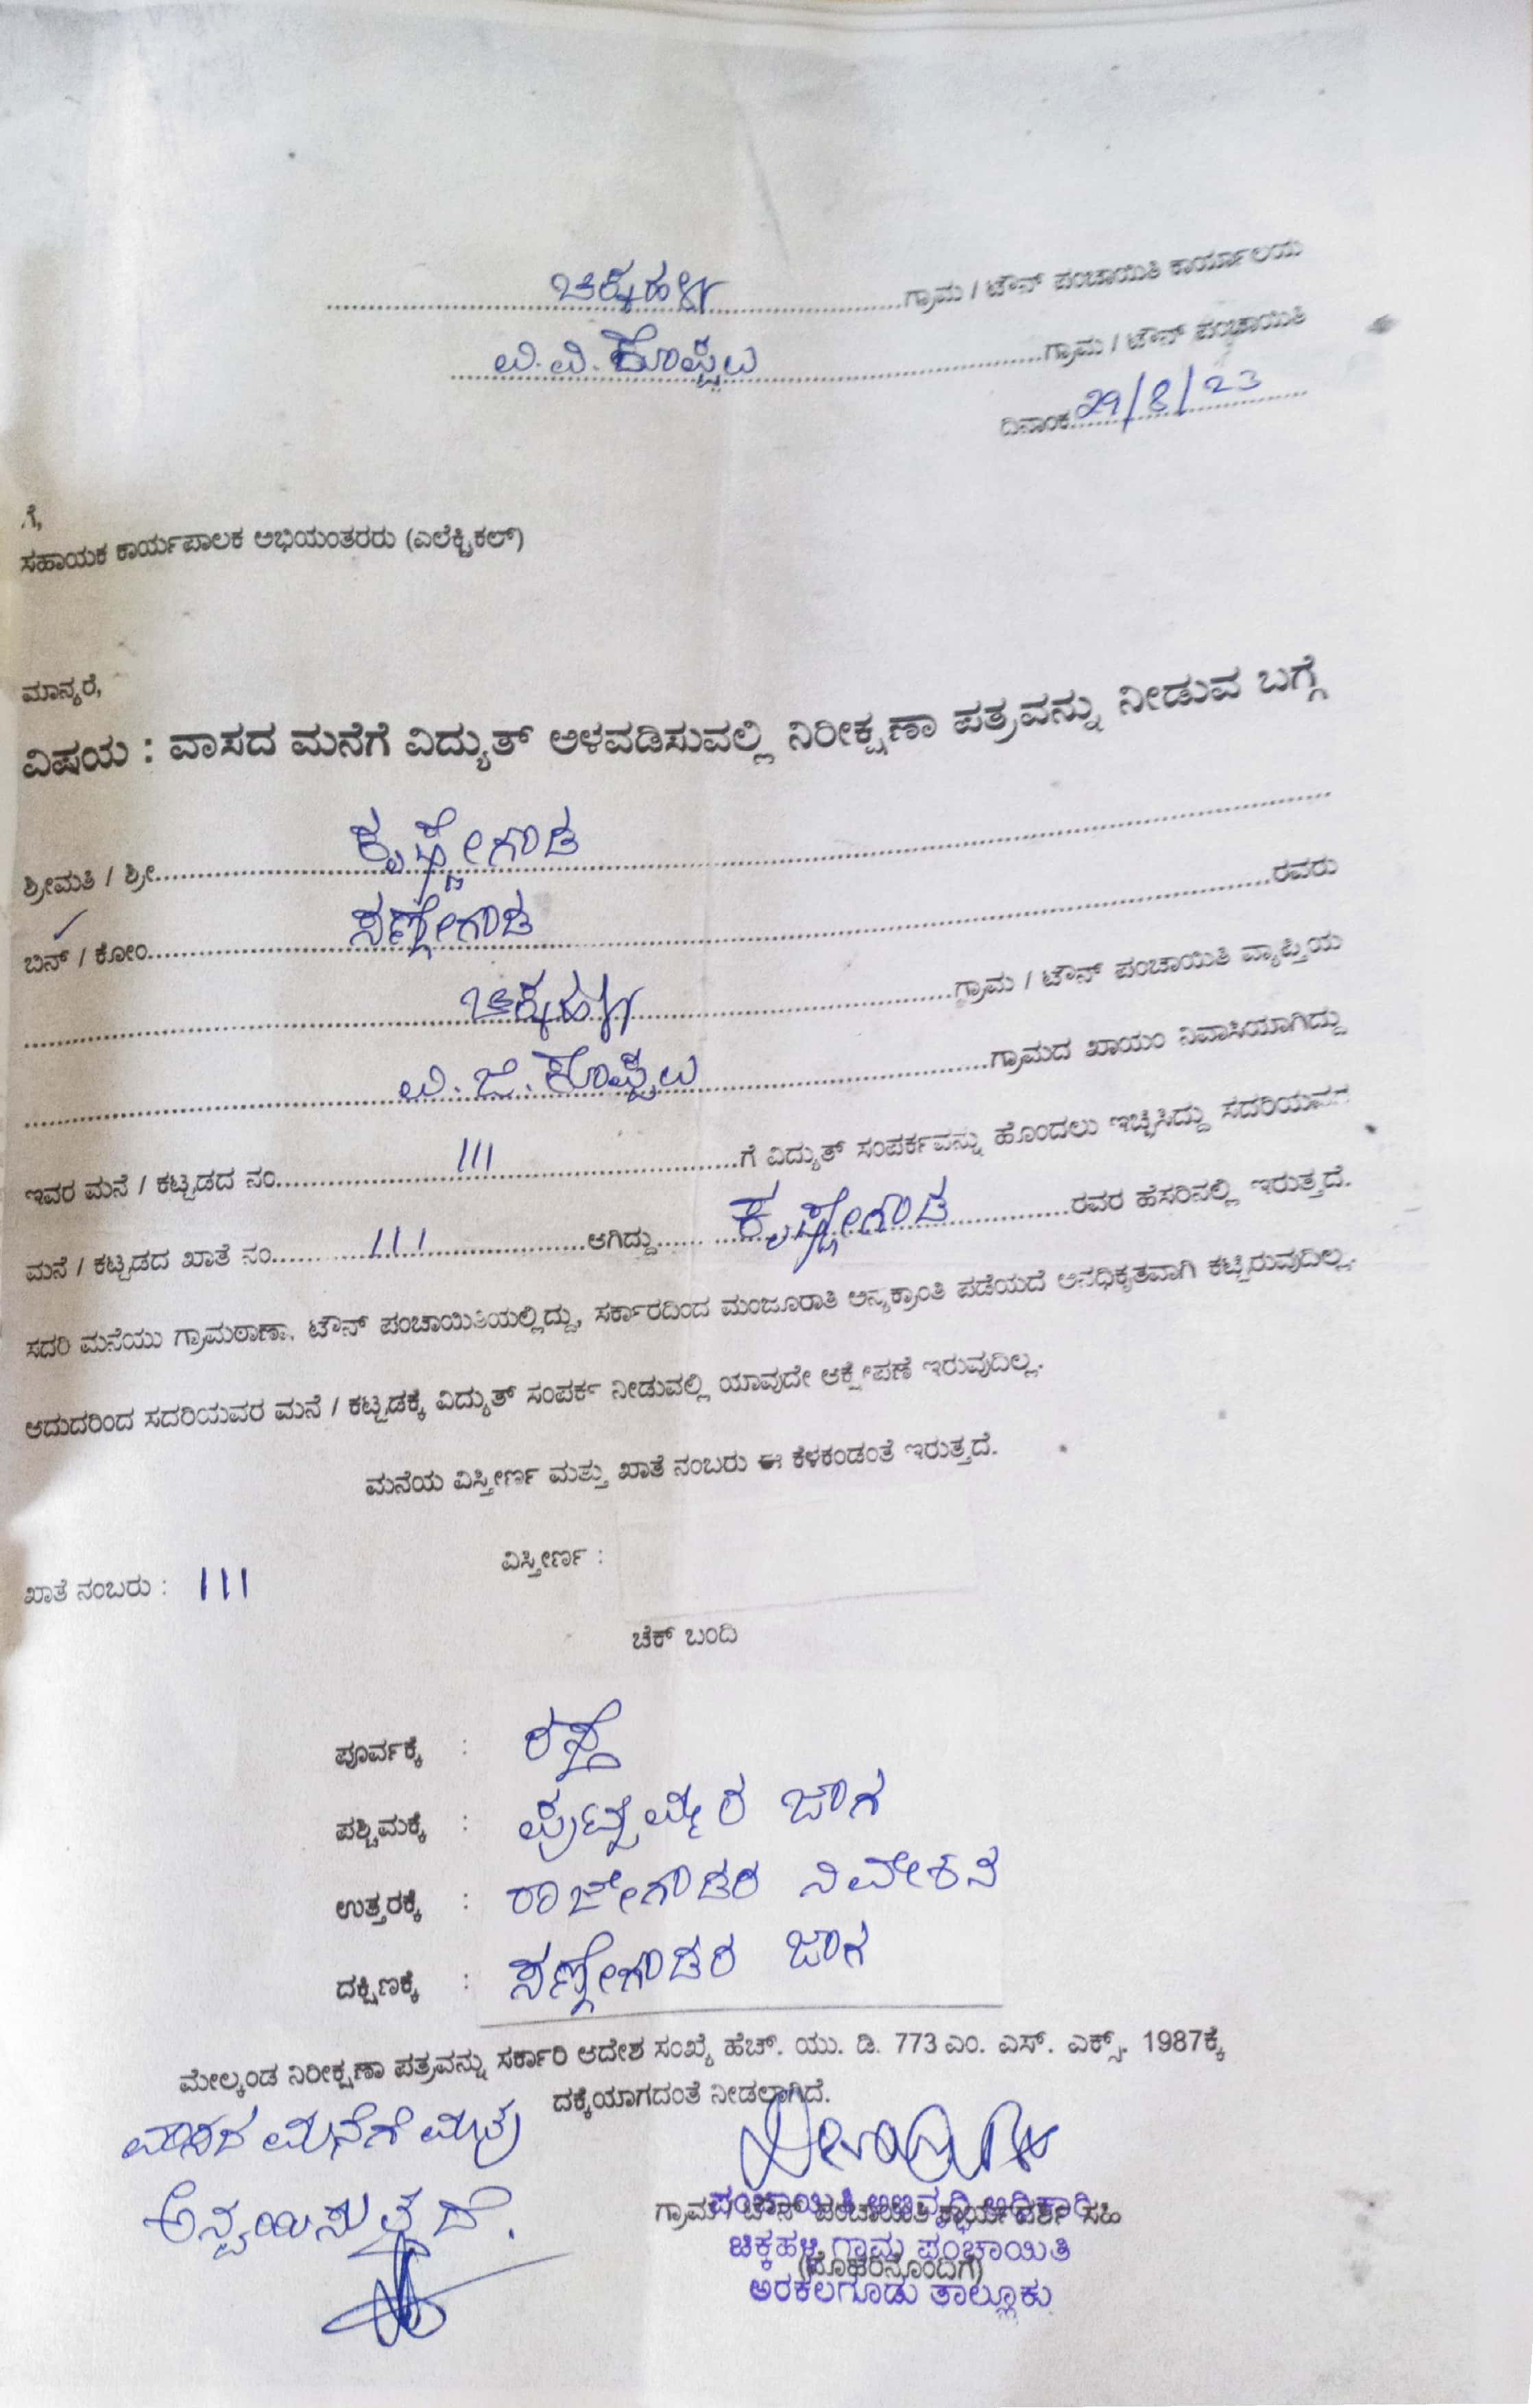 ಚಿಕ್ಕಹಳ್ಳಿ ಗ್ರಾಮ / ಟೌನ್ ಪಂಚಾಯಿತಿ ಕಾರ್ಯಾಲಯ
ಕೊಪ್ಪಲು ಗ್ರಾಮ / ಟೌನ್ ಪಂಚಾಯಿತಿ
ದಿನಾಂಕ 29/8/23
ಗೆ,
ಸಹಾಯಕ ಕಾರ್ಯಪಾಲಕ ಅಭಿಯಂತರರು (ಎಲೆಕ್ಟ್ರಿಕಲ್)
ಮಾನ್ಯರೆ,
ವಿಷಯ : ವಾಸದ ಮನೆಗೆ ವಿದ್ಯುತ್ ಅಳವಡಿಸುವಲ್ಲಿ ನಿರೀಕ್ಷಣಾ ಪತ್ರವನ್ನು ನೀಡುವ ಬಗ್ಗೆ
ಶ್ರೀಮತಿ / ಶ್ರೀ ಕೃಷ್ಣೇಗೌಡ
ಬಿನ್ / ಕೋಂ ಸಣ್ಣೇಗೌಡ ರವರು
ಚಿಕ್ಕಹಳ್ಳಿ ಗ್ರಾಮ / ಟೌನ್ ಪಂಚಾಯಿತಿ ವ್ಯಾಪ್ತಿಯ
ಕೊಪ್ಪಲು ಗ್ರಾಮದ ಖಾಯಂ ನಿವಾಸಿಯಾಗಿದ್ದು
ಇವರ ಮನೆ / ಕಟ್ಟಡದ ನಂ 111 ಗೆ ವಿದ್ಯುತ್ ಸಂಪರ್ಕವನ್ನು ಹೊಂದಲು ಇಚ್ಛಿಸಿದ್ದು ಸದರಿಯವರ
ಮನೆ / ಕಟ್ಟಡದ ಖಾತೆ ನಂ 111 ಆಗಿದ್ದು ಕೃಷ್ಣೇಗೌಡ ರವರ ಹೆಸರಿನಲ್ಲಿ ಇರುತ್ತದೆ.
ಸದರಿ ಮನೆಯು ಗ್ರಾಮಠಾಣಾ, ಟೌನ್ ಪಂಚಾಯಿತಿಯಲ್ಲಿದ್ದು, ಸರ್ಕಾರದಿಂದ ಮಂಜೂರಾತಿ ಅನ್ಯಕ್ರಾಂತಿ ಪಡೆಯದೆ ಅನಧಿಕೃತವಾಗಿ ಕಟ್ಟಿರುವುದಿಲ್ಲ.
ಆದುದರಿಂದ ಸದರಿಯವರ ಮನೆ / ಕಟ್ಟಡಕ್ಕೆ ವಿದ್ಯುತ್ ಸಂಪರ್ಕ ನೀಡುವಲ್ಲಿ ಯಾವುದೇ ಆಕ್ಷೇಪಣೆ ಇರುವುದಿಲ್ಲ.
ಮನೆಯ ವಿಸ್ತೀರ್ಣ ಮತ್ತು ಖಾತೆ ನಂಬರು ಈ ಕೆಳಕಂಡಂತೆ ಇರುತ್ತದೆ.
ಖಾತೆ ನಂಬರು : 111 ವಿಸ್ತೀರ್ಣ :
ಚೆಕ್ ಬಂದಿ
ಪೂರ್ವಕ್ಕೆ : ರಸ್ತೆ
ಪಶ್ಚಿಮಕ್ಕೆ : ಜಾಗ
ಉತ್ತರಕ್ಕೆ : ರಾಜೇಗೌಡರ ನಿವೇಶನ
ದಕ್ಷಿಣಕ್ಕೆ : ಸಣ್ಣೇಗೌಡರ ಜಾಗ
ಮೇಲ್ಕಂಡ ನಿರೀಕ್ಷಣಾ ಪತ್ರವನ್ನು ಸರ್ಕಾರಿ ಆದೇಶ ಸಂಖ್ಯೆ ಹೆಚ್. ಯು. ಡಿ. 773 ಎಂ. ಎಸ್. ಎಕ್ಸ್. 1987ಕ್ಕೆ
ದಕ್ಕೆಯಾಗದಂತೆ ನೀಡಲಾಗಿದೆ.
ವಾಸದ ಮನೆಗೆ ಮಾತ್ರ
ಅನ್ವಯಿಸುತ್ತದೆ.
ಗ್ರಾಮ / ಟೌನ್ ಪಂಚಾಯಿತಿ ಕಾರ್ಯದರ್ಶಿ ಸಹಿ
(ಮೊಹರಿನೊಂದಿಗೆ)
ಪಂಚಾಯಿತಿ ಅಭಿವೃದ್ಧಿ ಅಧಿಕಾರಿ
ಚಿಕ್ಕಹಳ್ಳಿ ಗ್ರಾಮ ಪಂಚಾಯಿತಿ
ಅರಕಲಗೂಡು ತಾಲ್ಲೂಕು